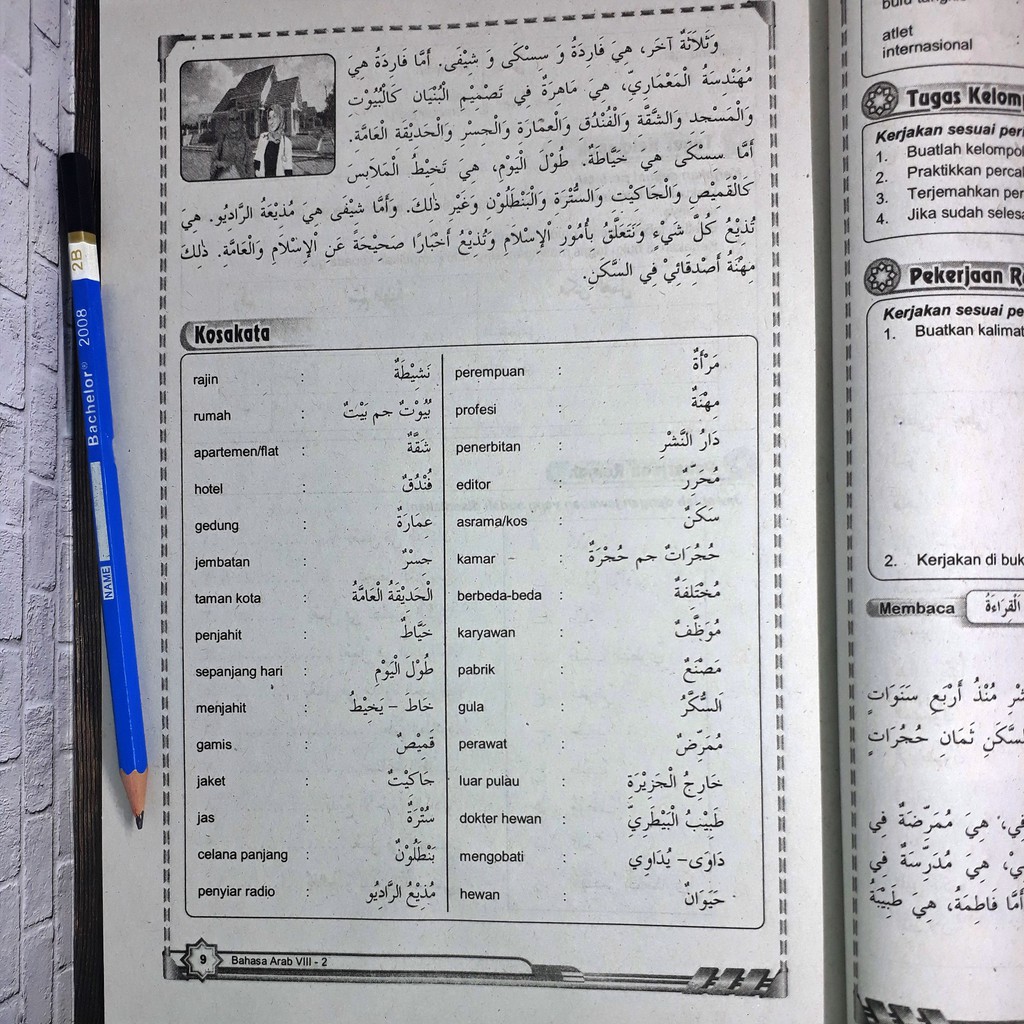 وَثَلَاثَةٌ آخَر، هِيَ فَارِدَةُ وَ سِسْكَى وَ شِيْفَى. أَمَّا فَارِدَةُ هِيَ
مُهَنْدِسَةُ الْمَعْمَارِيِّ، هِيَ مَاهِرَةٌ فِي تَصْمِيْمِ الْبُنْيَان كَالْبُيُوْتِ
وَالْمَسْجِدِ وَالشَّقَّةِ وَالْفُنْدُق وَالْعِمَارَةِ وَالْجِسْرِ وَالْحَدِيْقَة الْعَامَّة.
أَمَّا سِسْكَى هِيَ خَيَّاطَةٌ. طُوْلَ الْيَوْمِ، هِيَ تَخِيْطُ الْمَلَابِسَ
كَالْقَمِيْصِ وَالْجَاكِيْتِ وَالسُّتْرَةِ وَالْبَنْطَلُوْنِ وَغَيْر ذٰلِكَ. وَأَمَّا شِيْفَى هِيَ مُذِيْعَةُ الرَّادِيُو. هِيَ
تُذِيْعُ كُلَّ شَيْءٍ وَتَتَعَلَّقُ بِأُمُوْرِ الْإِسْلَامِ وَتُذِيْعُ أَخْبَارًا صَحِيْحَةً عَنِ الْإِسْلَامِ وَالْعَامَّةِ. ذٰلِكَ
مِهْنَةُ أَصْدِقَائِيْ فِي السَّكَنِ.
Kosakata
rajin : نَشِيْطَةٌ
rumah : بُيُوْتٌ جم بَيْتٌ
apartemen/flat : شَقَّةٌ
hotel : فُنْدُقٌ
gedung : عِمَارَةٌ
jembatan : جِسْرٌ
taman kota : الْحَدِيْقَةُ الْعَامَّةُ
penjahit : خَيَّاطٌ
sepanjang hari : طُوْلَ الْيَوْمِ
menjahit : خَاطَ – يَخِيْطُ
gamis : قَمِيْصٌ
jaket : جَاكِيْتٌ
jas : سُتْرَةٌ
celana panjang : بَنْطَلُوْنٌ
penyiar radio : مُذِيْعُ الرَّادِيُو
perempuan : مَرْأَةٌ
profesi : مِهْنَةٌ
penerbitan : دَارُ النَّشْر
editor : مُحَرِّرٌ
asrama/kos : سَكَنٌ
kamar : حُجُرَاتٌ جم حُجْرَةٌ
berbeda-beda : مُخْتَلِفَةٌ
karyawan : مُوَظَّفٌ
pabrik : مَصْنَعٌ
gula : اَلسُّكَّرُ
perawat : مُمَرِّضٌ
luar pulau : خَارِجُ الْجَزِيْرَةِ
dokter hewan : طَبِيْبُ الْبَيْطَرِيِّ
mengobati : دَاوَى – يُدَاوِي
hewan : حَيَوَانٌ
9 Bahasa Arab VIII - 2
2B
Bachelor® 2008
NAME
atlet
internasional :
Tugas Kelom
Kerjakan sesuai per
1. Buatlah kelompo
2. Praktikkan perca
3. Terjemahkan per
4. Jika sudah selesa
Pekerjaan R
Kerjakan sesuai pe
1. Buatkan kalimat
2. Kerjakan di buk
Membaca اَلْقِرَاءَةُ
مُنْذُ أَرْبَعِ سَنَوَاتٍ
السَّكَنِ ثَمَان حُجُرَاتٍ
هِيَ مُمَرِّضَةٌ فِي
هِيَ مُدَرِّسَةٌ فِي
أَمَّا فَاطِمَةُ، هِيَ طَبِيْبَةُ